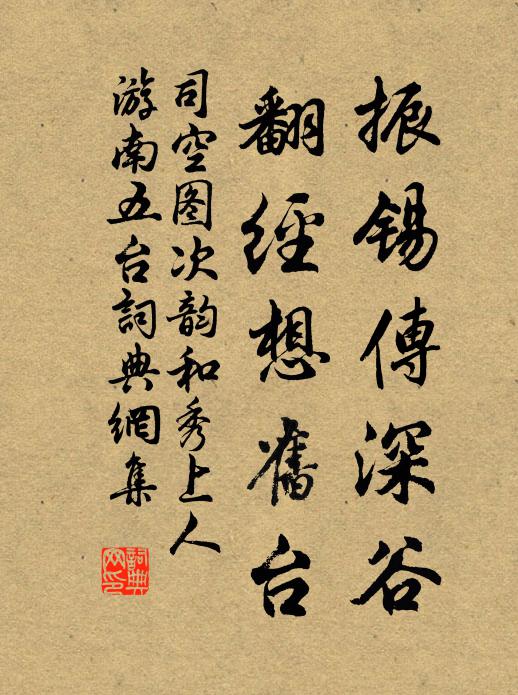 振錫傳深谷
翻經想舊台
司空图次韵和秀上人
游南五台詞典網集
詞典网印